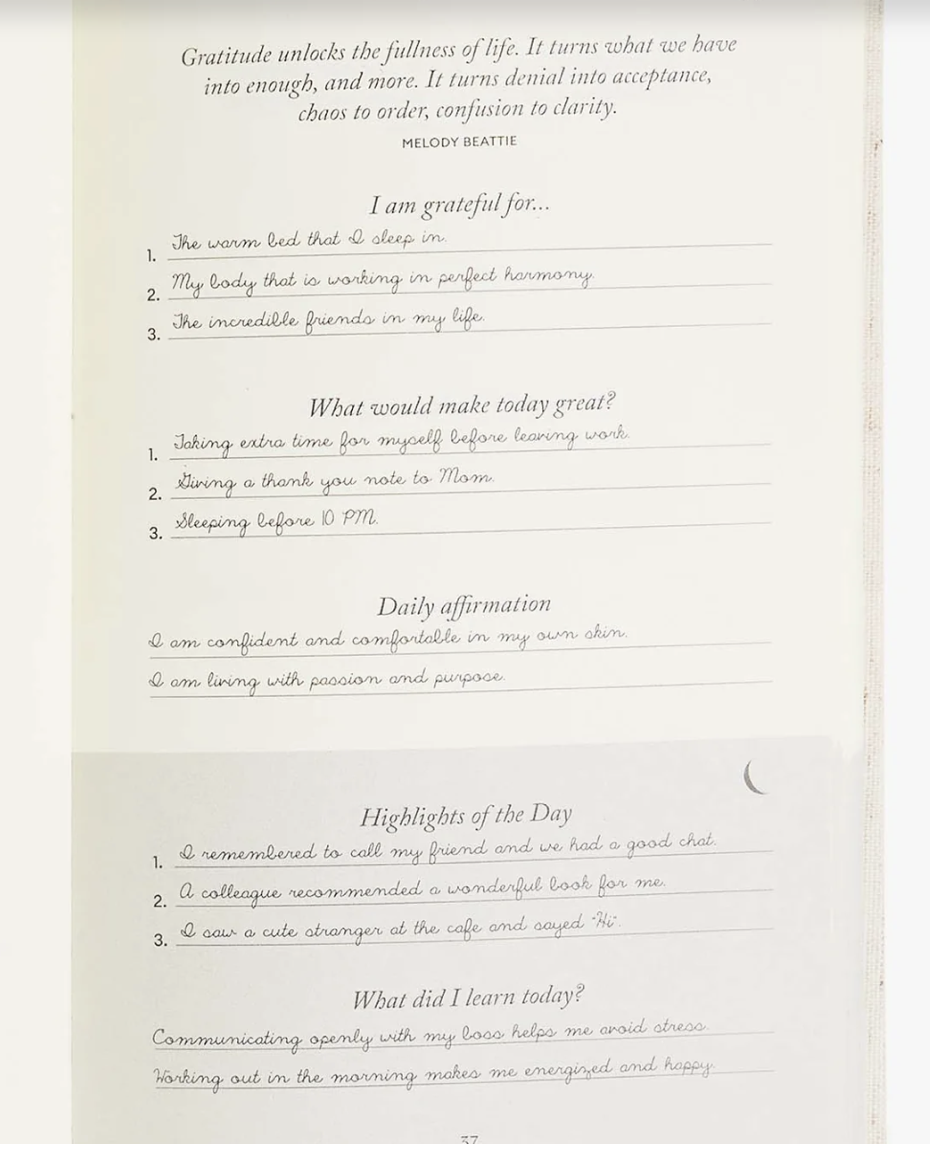 Gratitude unlocks the fullness of life. It turns what we have
into enough, and more. It turns denial into acceptance,
chaos to order, confusion to clarity.
MELODY BEATTIE
I am grateful for...
1. The warm bed that I sleep in.
2. My body that is working in perfect harmony.
3. The incredible friends in my life.
What would make today great?
1. Taking extra time for myself before leaving work.
2. Giving a thank you note to Mom.
3. Sleeping before 10 PM.
Daily affirmation
I am confident and comfortable in my own skin.
I am living with passion and purpose.
Highlights of the Day
1. I remembered to call my friend and we had a good chat.
2. A colleague recommended a wonderful book for me.
3. I saw a cute stranger at the cafe and sayed "Hi".
What did I learn today?
Communicating openly with my boss helps me avoid stress.
Working out in the morning makes me energized and happy.
37